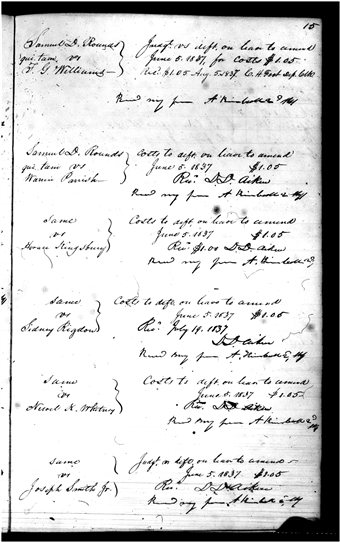 15
Samuel D. Rounds } Judgt. vs deft. on leave to amend
qui tam, vs June 5. 1837, for costs $1.05
T. G. Williams Recd. $1.05 Aug. 5. 1837
Recd my fees A. Kimball 2d
Samuel D. Rounds } Costs to deft. on leave to amend
qui tam vs June 5. 1837 $1.05
Warren Parrish Recd. D. D. Aiken
Recd my fees A. Kimball 2d
same } Costs to deft. on leave to amend
vs June 5. 1837 $1.05
Horace Kingsbury Recd $1.00 D. D. Aiken
Recd my fees A. Kimball 2d
same } Costs to deft. on leave to amend
vs June 5. 1837 $1.05
Sidney Rigdon Recd. July 14. 1837
D. D. Aiken
Recd my fees A. Kimball 2d
same } Costs to deft. on leave to amend
vs June 5. 1837 $1.05
Newel K. Whitney Recd. D. D. Aiken
Recd my fees A. Kimball 2d
same } Judgt. on deft. on leave to amend
vs June 5. 1837 $1.05
Joseph Smith Jr. Recd. D. D. Aiken
Recd my fees A. Kimball 2d